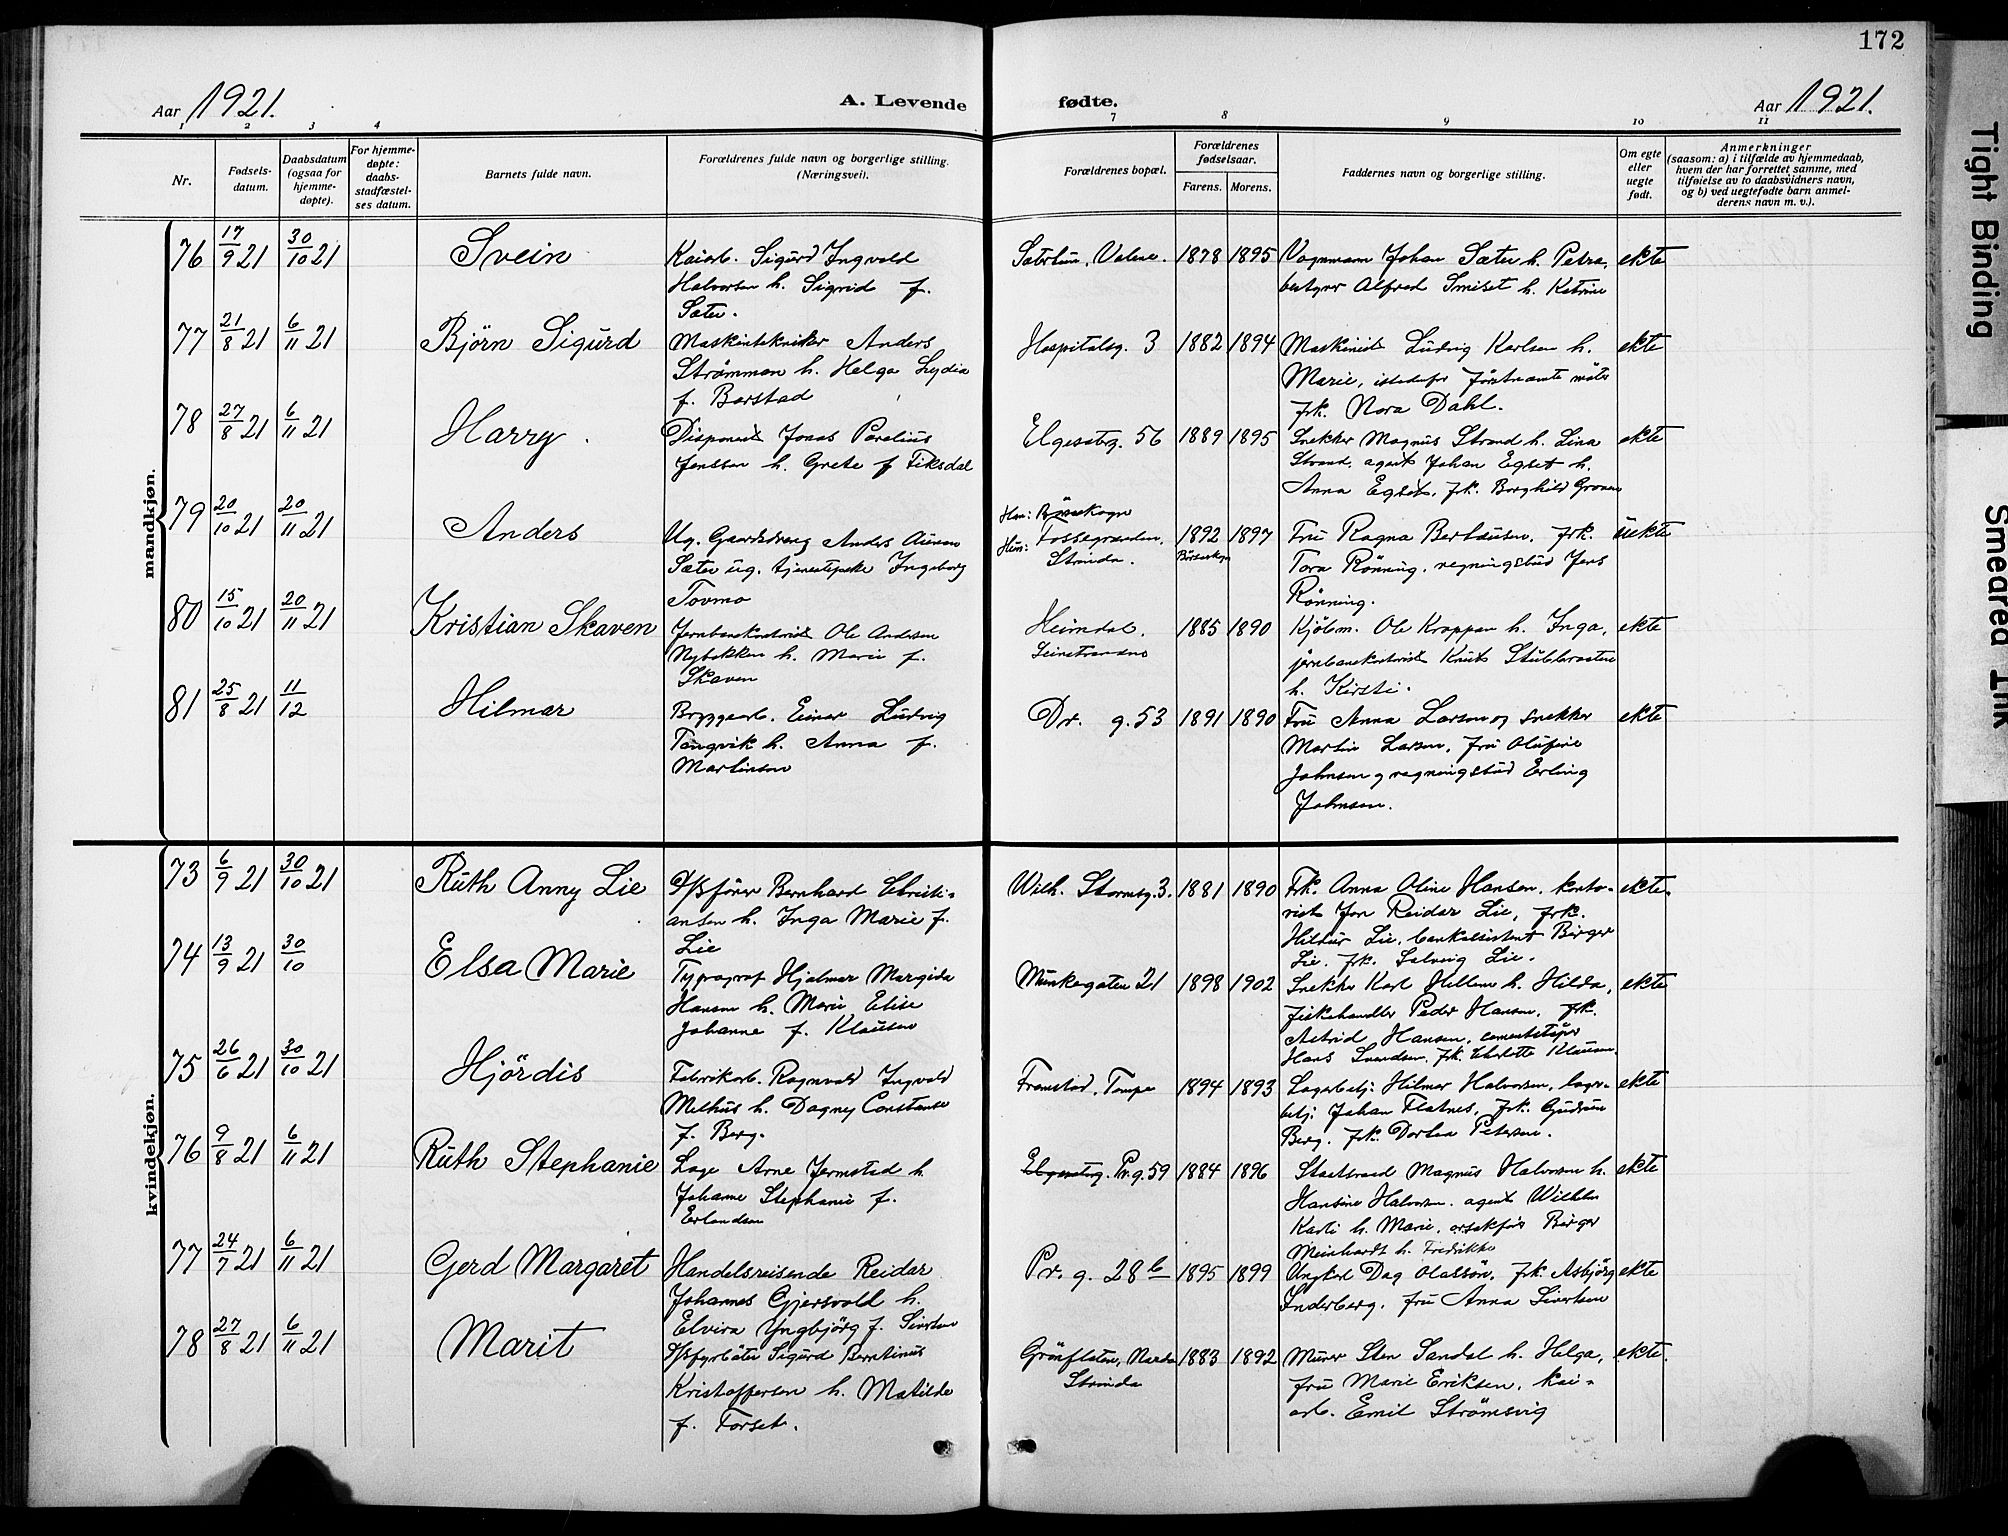 172
Aar 1921. A. Levende fødte. Aar 1921.
1 2 3 4 7 8 9 10 11
Nr.
Fødsels-
datum.
Daabsdatum
(ogsaa for
hjemme-
døpte).
For hjemme-
døpte:
daabs-
stadfæstel-
ses datum.
Barnets fulde navn.
Forældrenes fulde navn og borgerlige stilling.
(Næringsvei).
Forældrenes bopæl.
Forældrenes
fødselsaar.
Farens. Morens.
Faddernes navn og borgerlige stilling.
Om egte
eller
uegte
født.
Anmerkninger
(saasom: a) i tilfælde av hjemmedaab,
hvem der har forrettet samme, med
tilføielse av to daabsvidners navn,
og b) ved uegtefødte barn anmel-
derens navn m. v.).
mandkjøn.
76 17/9 21 30/10 21 Svein
Kaiarb. Sigurd Ingvald
Halvorsen h. Sigrid f.
Sæter.
1878 1895
Vognmann Johan Sæter h. Petra,
bestyrer Alfred Smiset h. Katrine
ekte
77 21/8 21 6/11 21 Björn Sigurd
Maskintekniker Anders
Strømman h. Helga Lydia
f. Barstad
Hospitalsg. 3 1882 1894
Maskinist Ludvig Karlsen h.
Marie, istedenfor förstnevnte möter
frk. Nora Dahl.
ekte
78 27/8 21 6/11 21 Harry
Disponent Jonas Parelius
Jenssen h. Grete f Fiksdal
Elgesetrg. 56 1889 1895
Snekker Magnus Strand h. Lina
Strand, agent Johan Egset h.
Anna Egset, frk. Borghild
ekte
79 20/10 21 20/11 21 Anders
Ug. Gaardsdreng Anders Aunen
Sæter ug. tjenestepike Ingeborg
Tovmo
Han: Börseskogn
Hun: Fossegrenden,
Strinda.
1892 1897
Börseskogn
Fru Ragna Berhausen, frk.
Tora Rönning, regningsbud Jens
Rönning.
uekte
80 15/10 21 20/11 21 Kristian Skaven
Jernbanekontorist Ole Andersen
Nybakken h. Marie f.
Skaven
Heimdal.
Leinstranden
1885 1890
Kjöbm. Ole Kroppan h. Inga,
jernbanekontorist Knut
h. Kirsti.
ekte
81 25/8 21 11/12 Hilmar
Bryggearb. Einar Ludvig
Tangvik h. Anna f.
Martinsen
Dr. g. 53 1891 1890
Fru Anna Larsen og snekker
Martin Larsen, fru Olufine
Johnsen og regningsbud Erling
Johnsen.
ekte
kvindekjøn.
73 6/9 21 30/10 21 Ruth Anny Lie
D/Sförer Bernhard Christi-
ansen h. Inga Marie f.
Lie
Wilh. Stormsg. 3. 1881 1890
Frk. Anna Oline Hansen, konto-
rist Jon Reidar Lie, frk.
Hildur Lie, bankassistent Birger
Lie, frk. Solveig Lie.
ekte.
74 13/9 21 30/10 Elsa Marie
Typograf Hjalmar Margido
Hansen h. Marie Elise
Johanne f. Klausen
Munkegaten 21 1898 1902
Snekker Karl Hellem h. Hilda,
fiskehandler Peder Hansen, frk.
Astrid Hansen, cementstöper
Hans Svendsen, frk. Charlotte Klausen.
ekte
75 26/6 21 30/10 21 Hjördis
Fabrikarb. Ragnvald Ingvald
Melhus h. Dagny Constanse
f. Berg.
Framstad, Tempe 1894 1893
Lagerbetj. Hilmar Halvorsen, lager-
betj. Johan Flatnes, frk. Gudrun
Berg, frk. Dorthea Petersen.
ekte
76 9/8 21 6/11 21 Ruth Stephanie
Læge Arne Jermstad h
Johanne Stephanie f.
Erlandsen
Elgeseterg. Pr. g. 59 1884 1896
Statsraad Magnus Halvorsen h.
Hansine Halvorsen, agent Wilhelm
Karli h. Marie, orsakförer Birger
Meinhardt h. Fredrikke
ekte
77 24/7 21 6/11 21 Gerd Margaret
Handelsreisende Reidar
Johannes Gjersvold h.
Elvira Yngbjörg f. Sivertsen
Pr. g. 28 b 1895 1899
Ungkarl Dag Olassön, frk. Asbjörg
Inderberg, fru Anna Sivertsen
ekte
78 27/8 21 6/11 21 Marit
D/Sfyrböter Sigurd Berntinus
Kristoffersen h. Matilde
f. Forset.
Grönflaten, Nardo
Strinda
1883 1892
Murer Sten Sandal h. Helga,
fru Marie Eriksen, kai-
arb. Emil Strömsvig
ekte.
Tight Binding
Smeared Ink